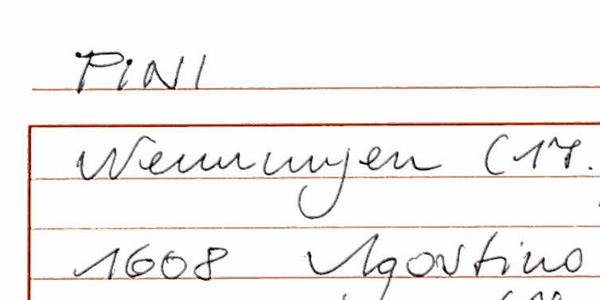 PiNI
Nennungen (17.
1608 Agostino